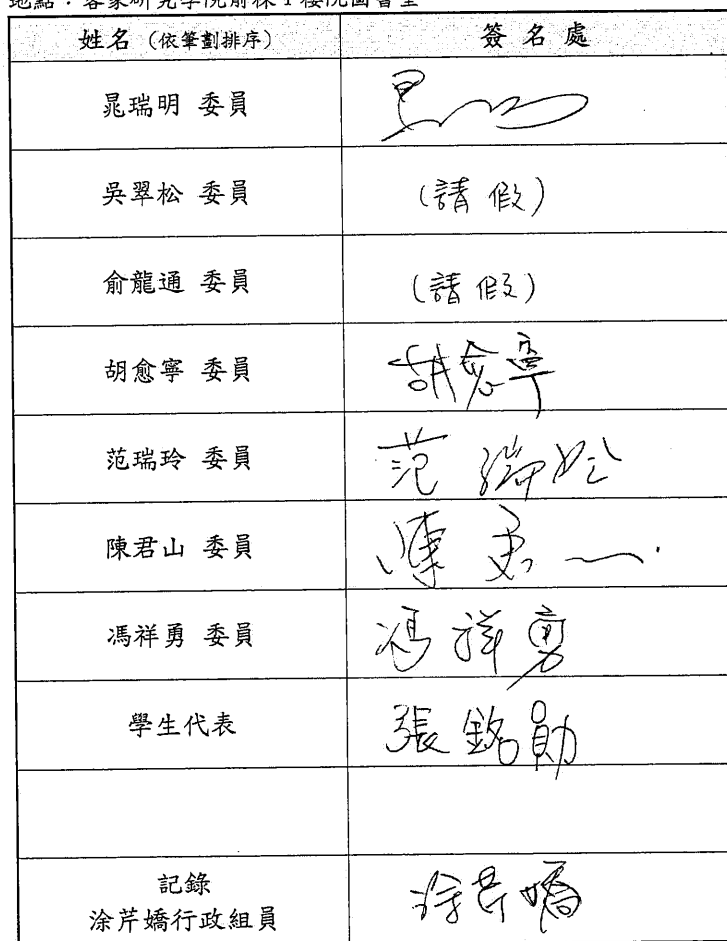 地點：客家研究學院前棟1樓院圖會室
姓名（依筆劃排序） 簽名處
晁瑞明 委員
吳翠松 委員 (請假)
俞龍通 委員 (請假)
胡愈寧 委員 胡愈寧
范瑞玲 委員 范瑞玲
陳君山 委員 陳君山
馮祥勇 委員 馮祥勇
學生代表 張銘勛
記錄
涂芹嬌行政組員 涂芹嬌